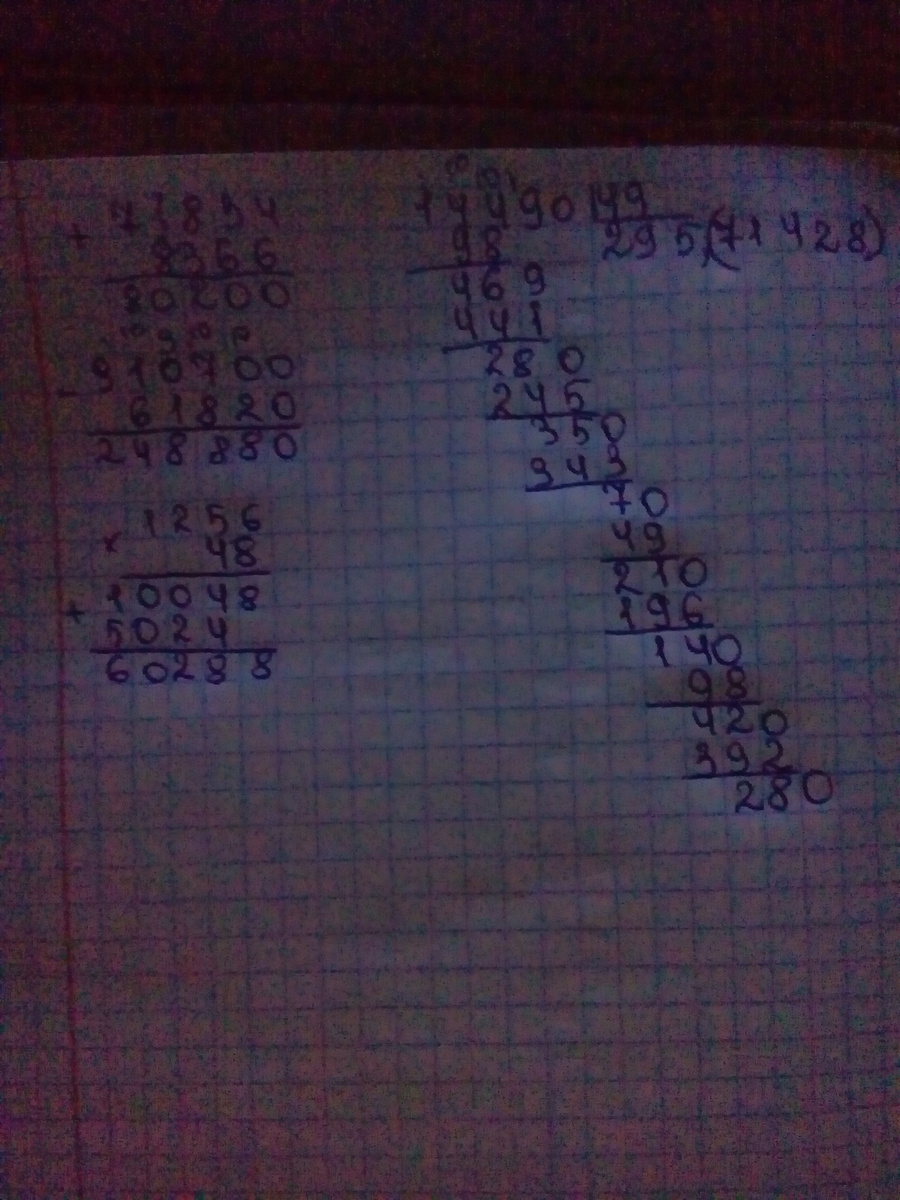 + 71834
8366
80200
- 910700
61820
248880
× 1256
48
+ 10048
5024
60288
144901 49
98 295(71428)
469
441
280
245
350
343
70
49
210
196
140
98
420
392
280